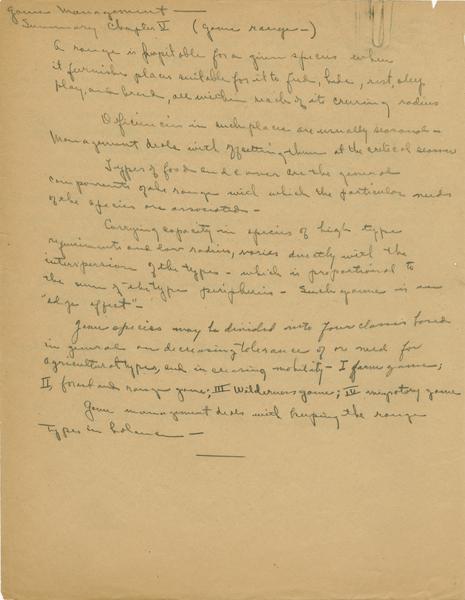 Game Management —
Summary Chapter V (Game range —)
A range is habitable for a given species when
it furnishes places suitable for it to feed, hide, rest, sleep
play, and breed, all within reach of its cruising radius
Deficiencies in such places are usually seasonal —
Management deals with offsetting them at the critical season
Types of food and cover are the general
components of the range with which the particular needs
of the species are associated —
Carrying capacity in species of high type
requirements and low radius, varies directly with the
interspersion of the types — which is proportional to
the sum of the type peripheries — Such game is an
"edge effect" —
Game species may be divided into four classes based
in general on decreasing tolerance of or need for
agricultural types, and increasing mobility — I farm game;
II, forest and range game; III Wilderness game; IV migratory game
Game management deals with keeping the range
types in balance —